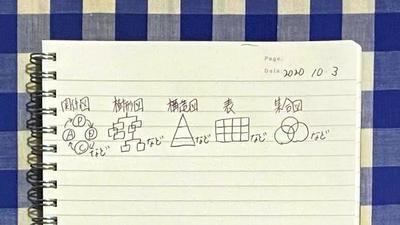 Page:
Date: 2020 10 3
関係図 樹形図 構造図 表 集合図
P
A D
C
など など など など など